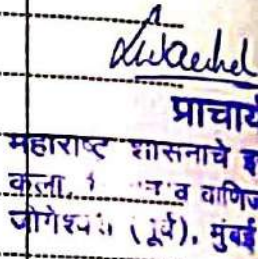 प्राचार्य
महाराष्ट्र शासनाचे इ
कला, व वाणिज
जोगेश्वरी (पूर्व), मुंबई